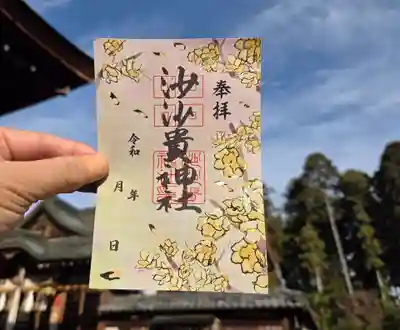 奉拝
沙沙貴神社
令和 年
月 日